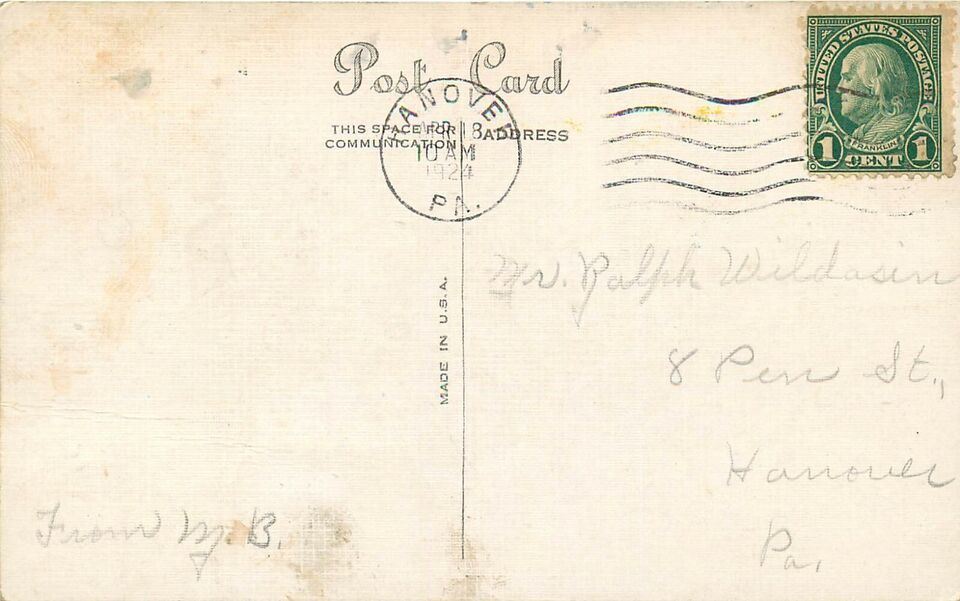 Post Card
THIS SPACE FOR
COMMUNICATION
ADDRESS
HANOVER
APR 18
10 AM
1924
PA.
UNITED STATES POSTAGE
FRANKLIN
1 CENT 1
MADE IN U.S.A.
Mr. Ralph Wildasin
8 Penn St.,
Hanover
Pa.
From M. B.